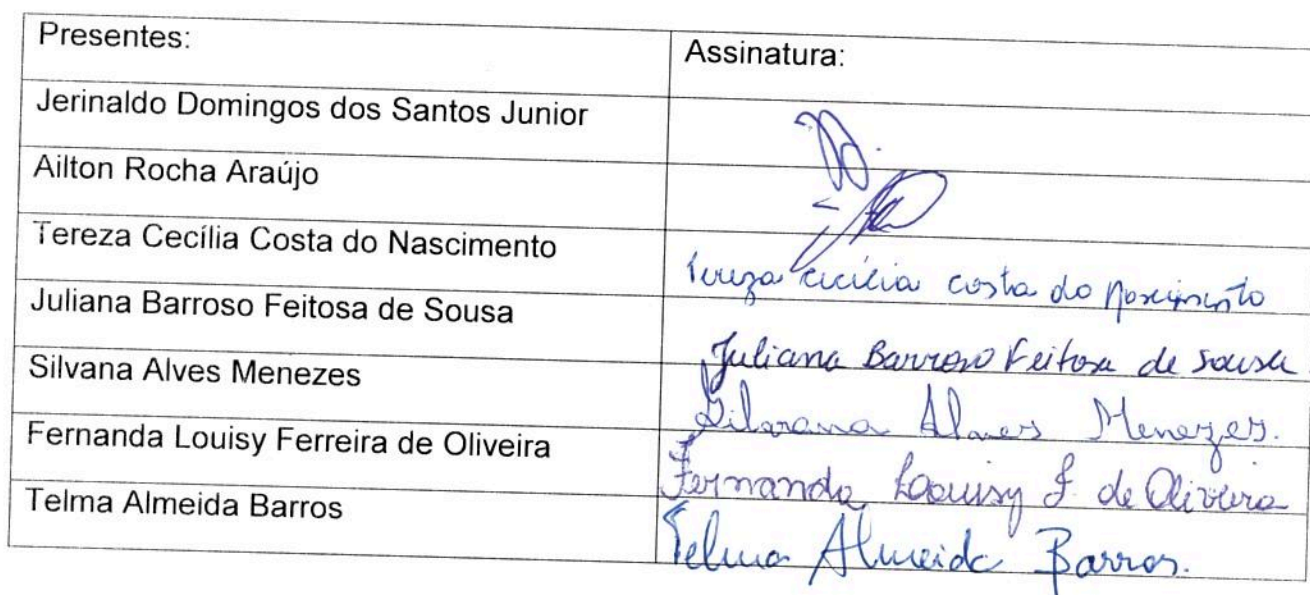 Presentes: Assinatura:
Jerinaldo Domingos dos Santos Junior
Ailton Rocha Araújo
Tereza Cecília Costa do Nascimento Tereza Cecília Costa do Nascimento
Juliana Barroso Feitosa de Sousa Juliana Barroso Feitosa de Sousa
Silvana Alves Menezes Silvana Alves Menezes.
Fernanda Louisy Ferreira de Oliveira Fernanda Louisy F. de Oliveira
Telma Almeida Barros Telma Almeida Barros.